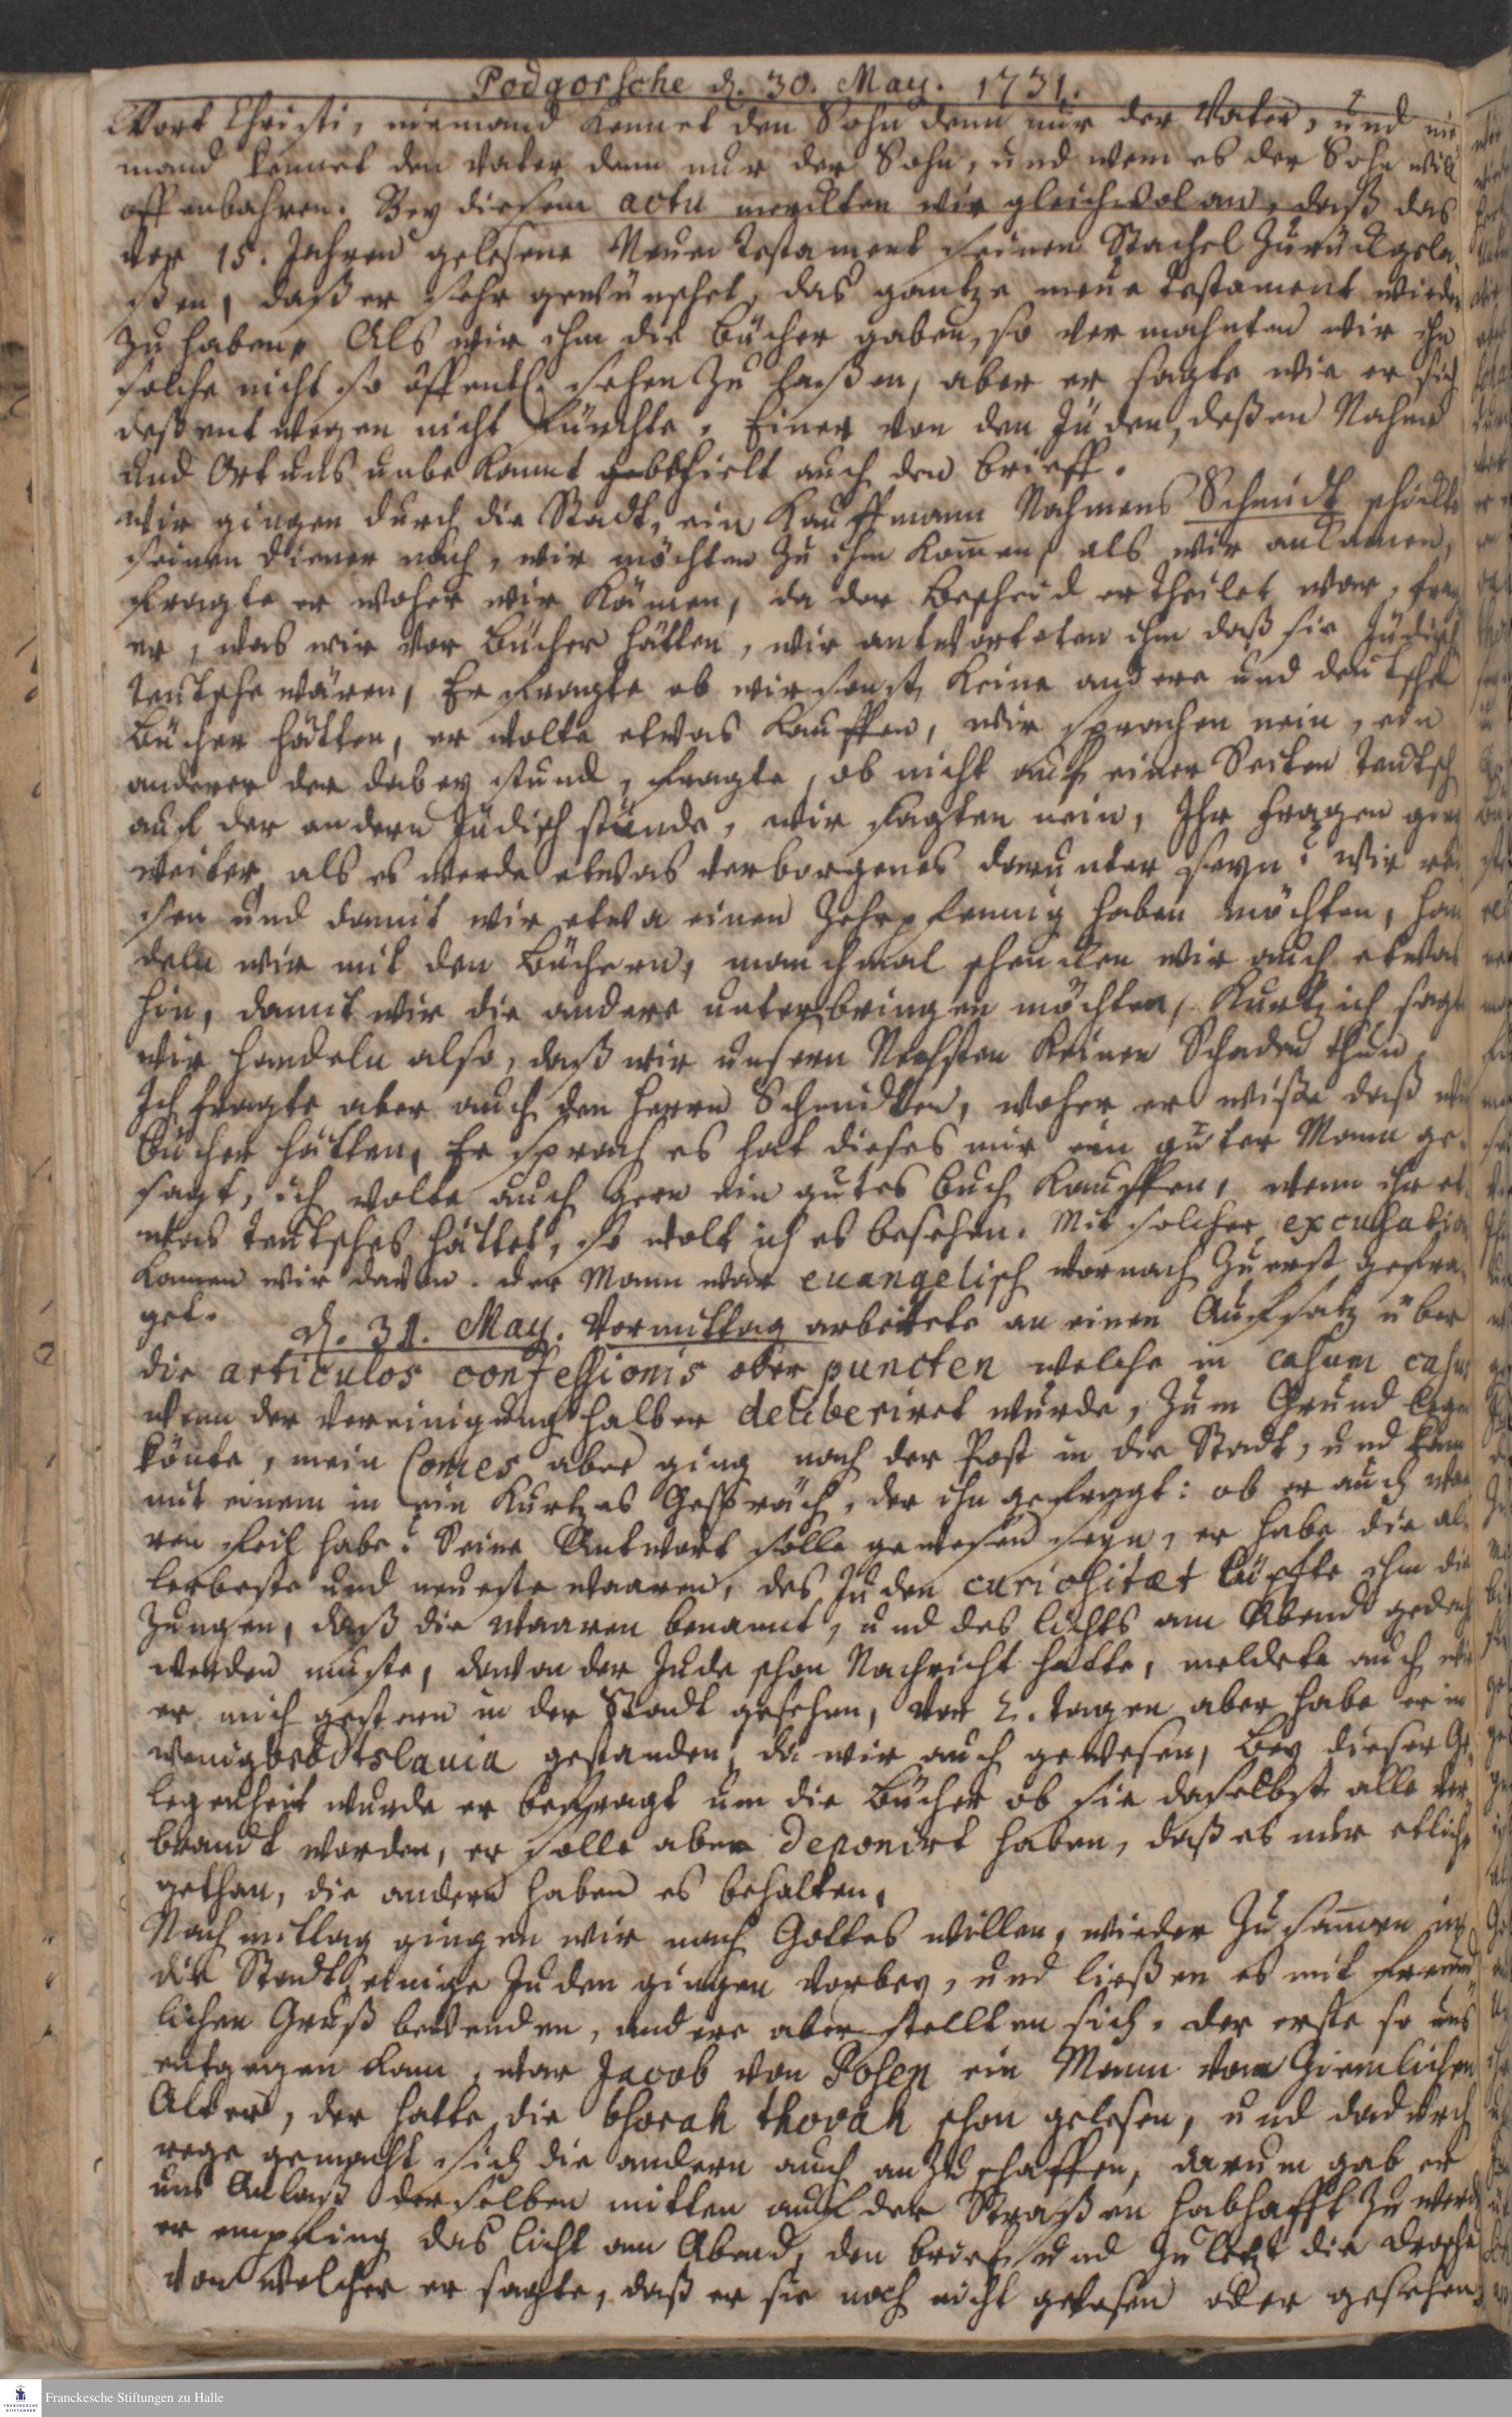 Podgorsche d. 30. May. 1731.
Wort Christi, niemand kennet den Sohn denn nur der Vater, und nie
mand kennet den Vater denn nur der Sohn, und wem es der Sohn will
offenbahren. Bey diesem actu merckten wir gleichwol an, daß das
vor 15. Jahren gelesene Neuen Testament seinen Stachel zurückgela-
ßen, daß er sehr gewünschet, das gantze neue Testament wieder
zu haben, Als wir ihm die Bücher gaben, so vermahnten wir ihn
solche nicht so öffentl. sehen zu laßen, aber er sagte wie er sich
deßentwegen nicht fürchte. Einer von den Juden, deßen Nahme
und Ort uns unbekannt erhielt auch den brieff.
Wir gingen durch die Stadt, ein Kauffmann Nahmens Schmidt schickte
seinen Diener nach, wir möchten zu ihm kommen, als wir ankamen,
fragte er woher wir kämen, da der Bescheid ertheilet war, frag
er, was wir vor Bücher hätten, wir antworteten ihm daß sie Jüdisch
teutsche wären, Er fragte ob wir sonst keine andere und deutsche
Bücher hätten, er wolte etwas kauffen, wir sprachen nein, ein
anderer der dabey stund, fragte, ob nicht auf einer Seiten teutsch
auf der andern Jüdisch stünde, wir sagten nein, Ihr fragen ging
weiter als es werde etwas verborgenes darunter seyn? wir rei
sen und damit wir etwa einen Zehrpfennig haben möchten, han
deln wir mit den Büchern, manchmal schencken wir auch etwas
hin, damit wir die andere unterbringen möchten, kurtz ich sage
wir handeln also, daß wir unsern Nechsten keinen Schaden thun.
Ich fragte aber auch den Herrn Schmidten, woher er wiße daß wir
bücher hätten, Er sprach es hat dieses mir ein guter Mann ge-
sagt, ich wolte auch gern ein gutes buch kauffen, wenn ihr et-
was teutsches hättet, so wolt ich es besehen. Mit solcher excusation
kamen wir davon. der Mann war euangelisch wornach zuerst gefra-
get.
d. 31. May. Vormittag arbeitete an einen Auffsatz über
die articulos confessionis oder puncten welche in casum casus
wenn der Vereinigung halber deliberiret würde, zum Grund legen
könte, mein Comes aber ging nach der Post in die Stadt, und kam
mit einem in ein kurtzes Gespräch, der ihn gefragt: ob er auch waa
ren feil habe? Seine Antwort solle gewesen seyn, er habe die al-
lerbeste und neueste waaren, des Juden curiositæt lüpfte ihm die
Zungen, daß die waaren benannt, und des lichts am Abend gedacht
werden muste, davon der Jude schon Nachricht hatte, meldete auch wie
er mich gestern in der Stadt gesehen, vor 2. tagen aber habe er in
gestanden, da wir auch gewesen, Bey dieser Ge-
legenheit wurde er befragt um die Bücher ob sie daselbst alle ver-
brandt worden, er solle aber deponirt haben, daß es nur etliche
gethan, die andern haben es behalten.
Nach mittag gingen wir nach Gottes willen, wieder zusammen in
die Stadt, einige Juden gingen vorbey, und ließen es mit freund
lichen Gruß bewenden, andere aber stellten sich. der erste so uns
entgegen kam, war Jacob von Posen ein Mann von ziemlichen
Alter, der hatte die thorah thovah schon gelesen, und dadurch
rege gemacht sich die andern auch anzuschaffen, darum gab er
uns Anlaß derselben mitten auf der Straßen habhafft zu werden
er empfing das licht am Abend, den brief und zuletzt die drosche
von welcher er sagte, daß er sie noch nicht gelesen oder gesehen
Franckesche Stiftungen zu Halle